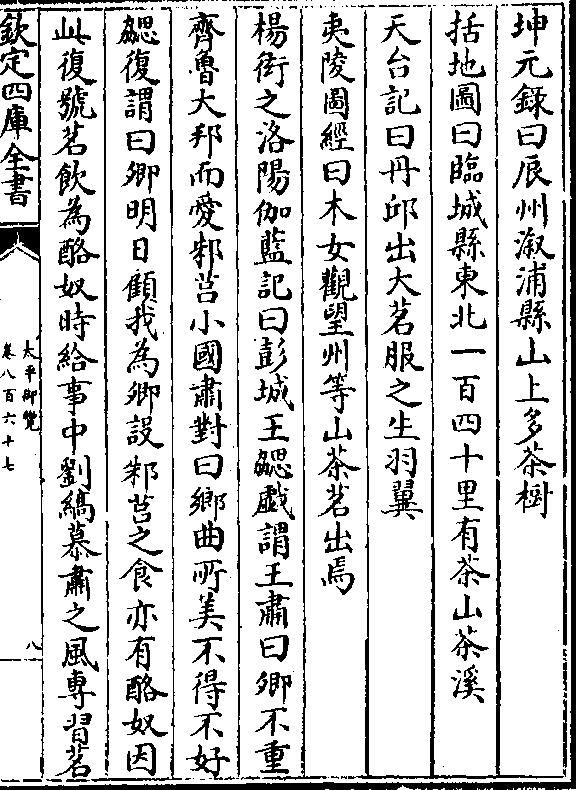 坤元録曰辰州溆浦縣山上多茶樹
括地圖曰臨城縣東北一百四十里有茶山茶溪
天台記曰丹邱出大茗服之生羽翼
夷陵圖經曰木女觀望州等山茶茗出焉
楊衒之洛陽伽藍記曰彭城王勰戯謂王肅曰卿不重
齊魯大邦而愛邾莒小國肅對曰鄉曲所美不得不好
勰復謂曰卿明日顧我為卿設邾莒之食亦有酪奴因
此復號茗飲為酪奴時給事中劉縞慕肅之風専習茗
欽定四庫全書
太平御覽
卷八百六十七
八